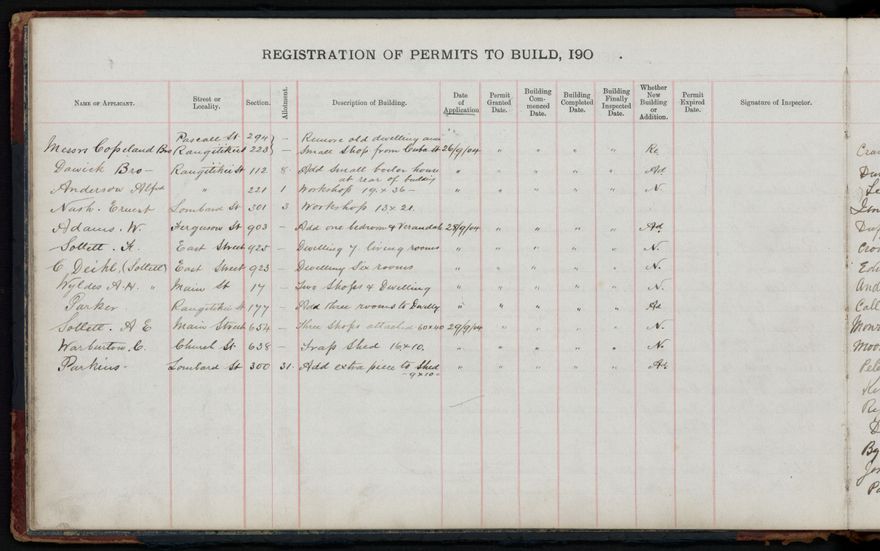 REGISTRATION OF PERMITS TO BUILD, 190 .
NAME OF APPLICANT. Street or Locality. Section. Allotment. Description of Building. Date of Application Permit Granted Date. Building Commenced Date. Building Completed Date. Building Finally Inspected Date. Whether New Building or Addition. Permit Expired Date. Signature of Inspector.
Pascall St 294 } — Remove old dwelling and "
Messrs Copeland Bro Rangitikei St 223 } — Small Shop from Cuba St 26/9/04 " " " " Re
Dawick Bro — Rangitikei St 112 8 Add Small boiler house " " " " " Ad
at rear of building
Anderson Alfred " 221 1 Workshop 19 x 36 — " " " " " N.
Nash. Ernest Lombard St 301 3 Workshop 13 x 21.
Adams. W. Ferguson St 903 — Add one bedroom & Verandah 28/9/04 " " " " Ad.
Sollett. H. East Street 925 — Dwelling 7 living rooms " " " " " N.
C Deihl. (Sollett) East Street 923 — Dwelling Six rooms " " " " " N.
Wyldes A. H. " Main St 17 — Two Shops & Dwelling " " " " " N.
Parker Rangitikei St 177 — Add three rooms to Dwelly " " " " " Ad
Sollett. A E Main Street 654 — Three Shops attached 60 x 40 29/9/04 " " " " N.
Warburton. C. Church St 638 — Trap Shed 16 x 10. " " " " " N.
Parkins — Lombard St 300 31. Add extra piece to Shed " " " " " Ad
— 9 x 10 —